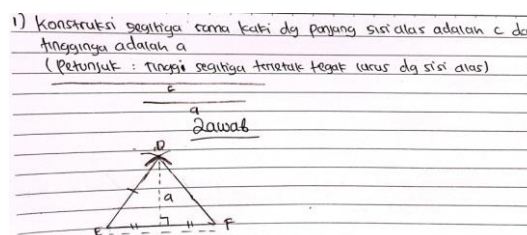 1) Konstruksi segitiga sama kaki dg panjang sisi alas adalah c da
tingginya adalah a
(Petunjuk : Tinggi segitiga terletak tegak lurus dg sisi alas)
c
a
Jawab
D
a
E
F